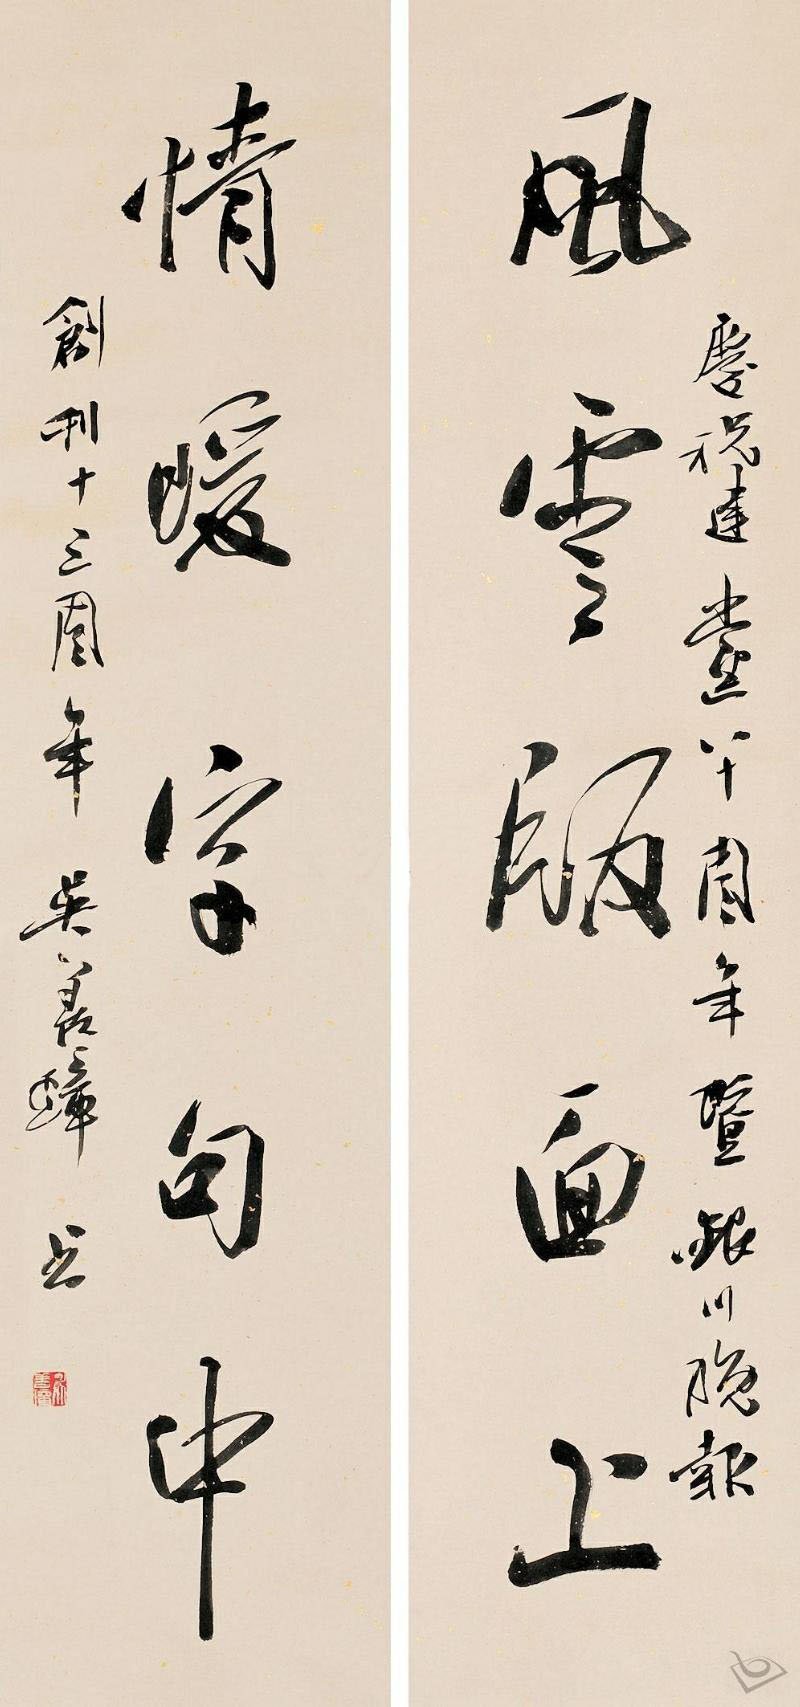 風雲版面上
慶祝建黨八十周年暨銀川晚報
情暖字句中
創刊十三周年 吳善璋書